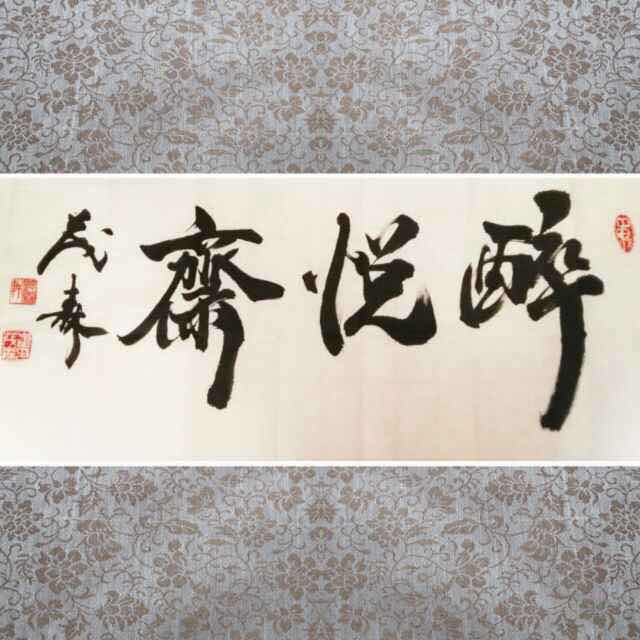 醉悦齋
茂森